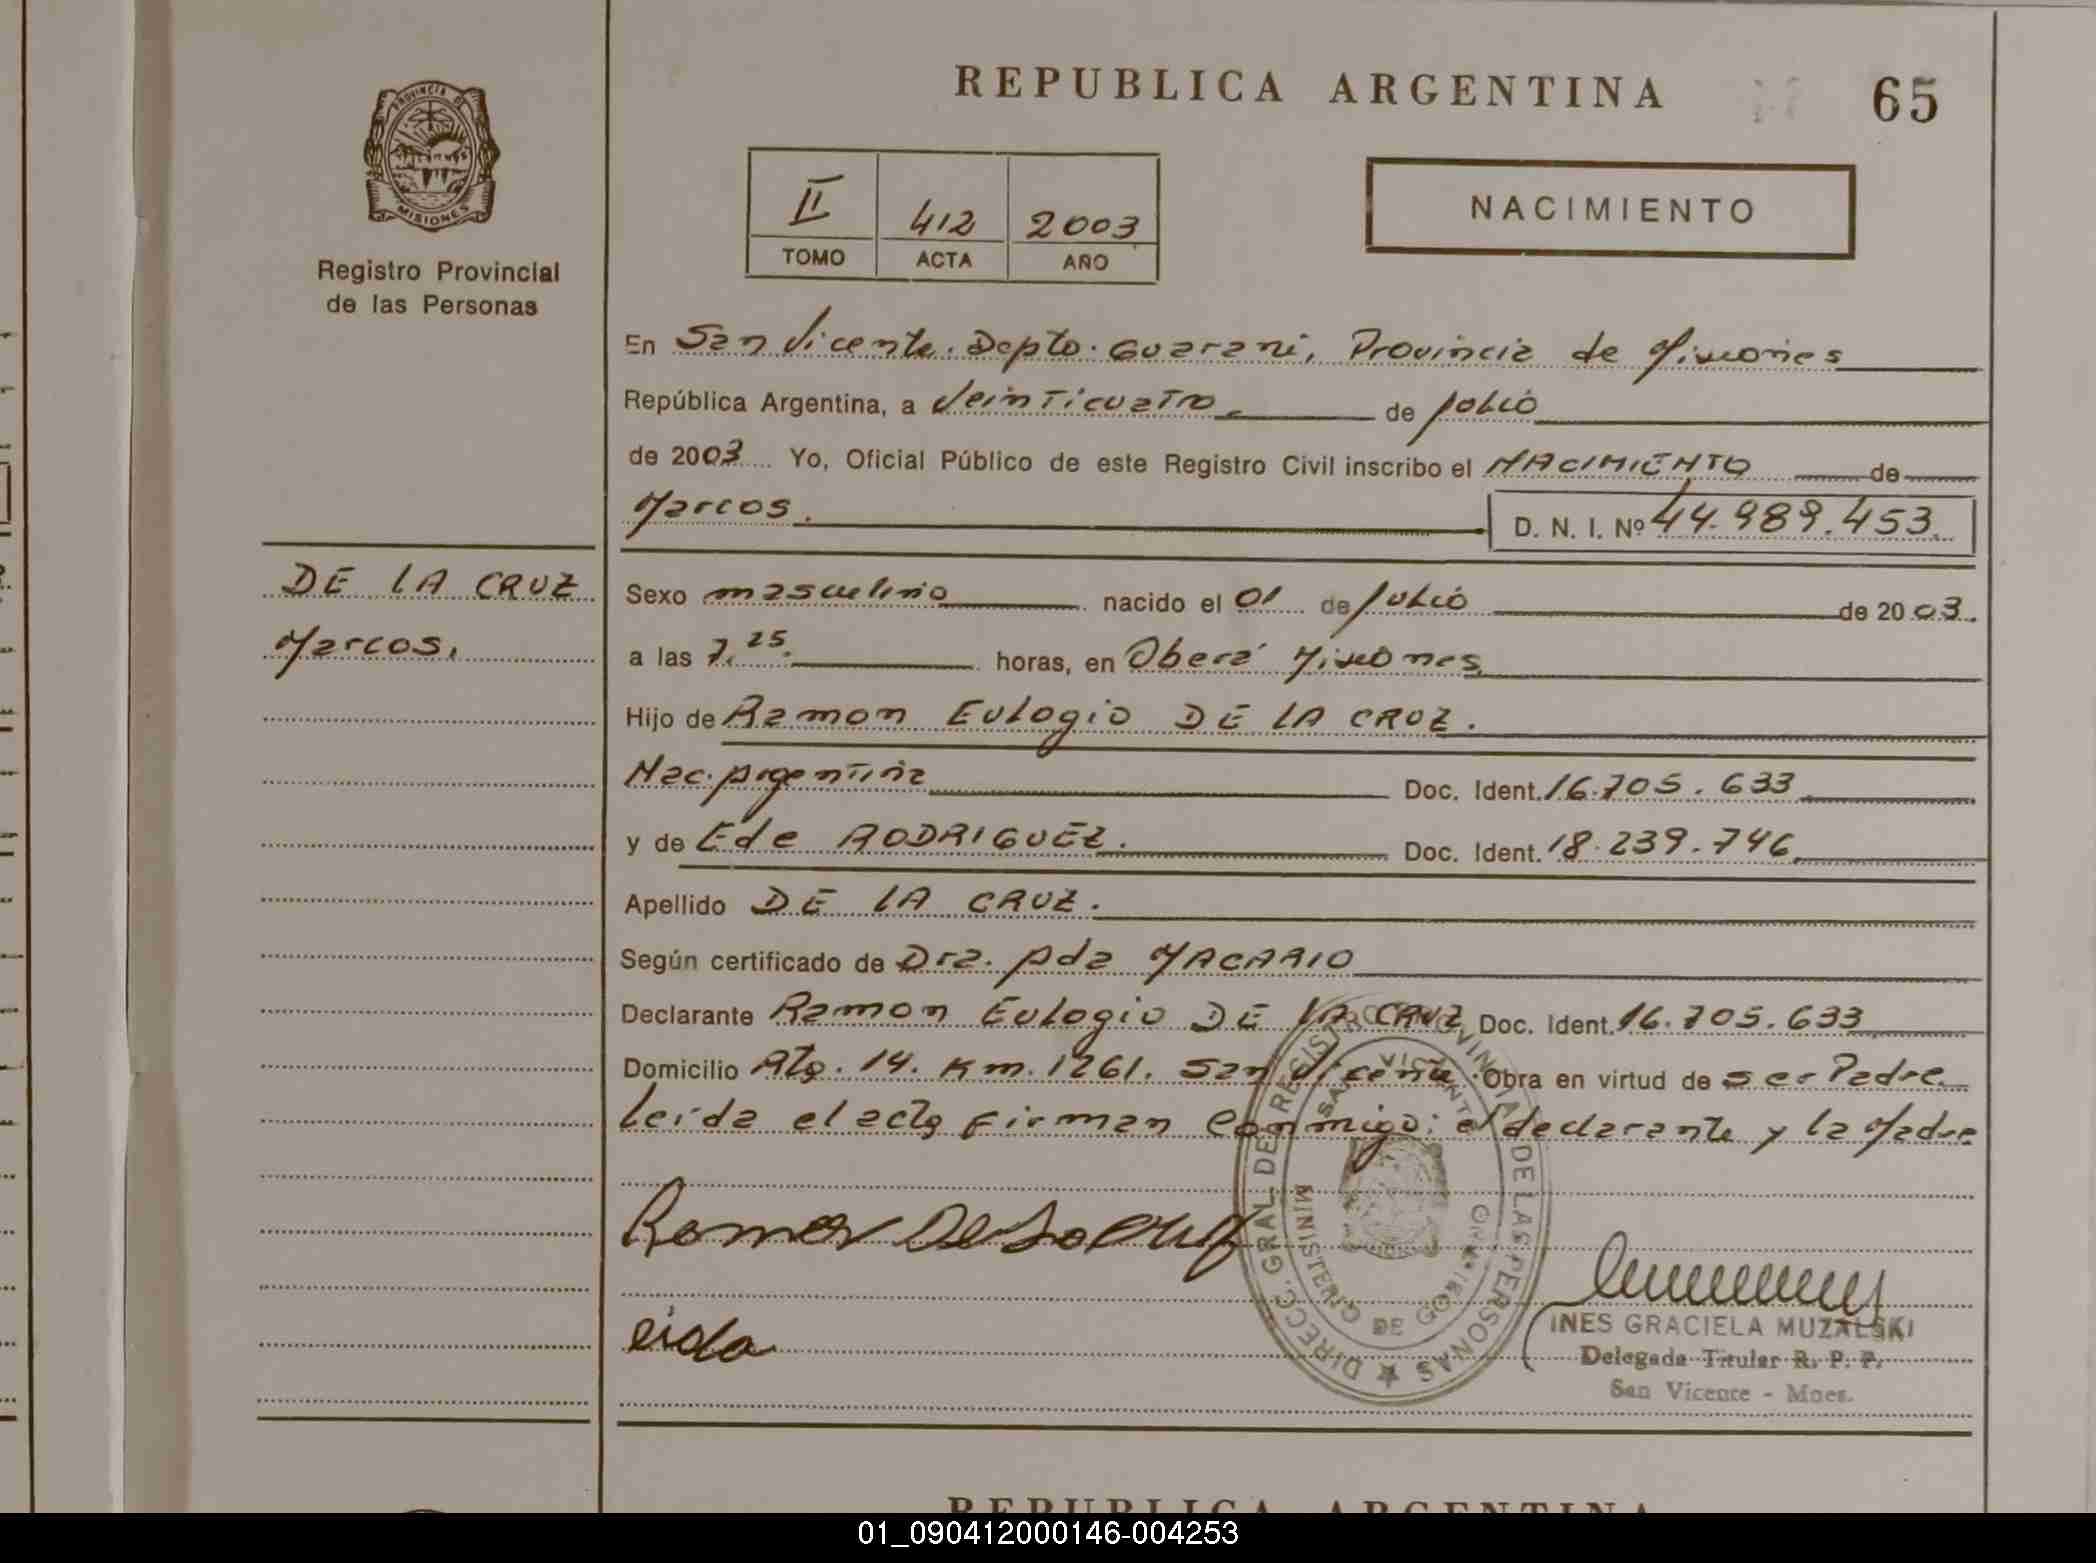 REPUBLICA ARGENTINA
65
PROVINCIA DE
MISIONES
Registro Provincial
de las Personas
II 412 2003
TOMO ACTA AÑO
NACIMIENTO
En San Vicente. Depto. Guarani, Provincia de Misiones
República Argentina, a Veinticuatro. de Julio
de 2003 Yo, Oficial Público de este Registro Civil inscribo el NACIMIENTO de
Marcos. D. N. I. Nº 44.989.453.
DE LA CRUZ
Marcos.
Sexo masculino nacido el 01 de Julio de 2003.
a las 7.25. horas, en Oberá Misiones
Hijo de Ramon Eulogio DE LA CRUZ.
Nac. Argentina Doc. Ident. 16.705.633
y de Ede RODRIGUEZ. Doc. Ident. 18.239.746
Apellido DE LA CRUZ.
Según certificado de Dra. Ada MACARIO
Declarante Ramon Eulogio DE LA CRUZ Doc. Ident. 16.705.633
Domicilio Rta. 14. Km. 1261. San Vicente. Obra en virtud de ser Padre
Leída el acta Firman Conmigo: el declarante y la Madre
Ramon De La Cruz
eida
DIRECC. GRAL. DE REGISTRO PROVINCIAL DE LAS PERSONAS
SAN VICENTE
MINISTERIO DE GOBIERNO
INES GRACIELA MUZALSKI
Delegada Titular R. P. P.
San Vicente - Mnes.
REPUBLICA ARGENTINA
01_090412000146-004253